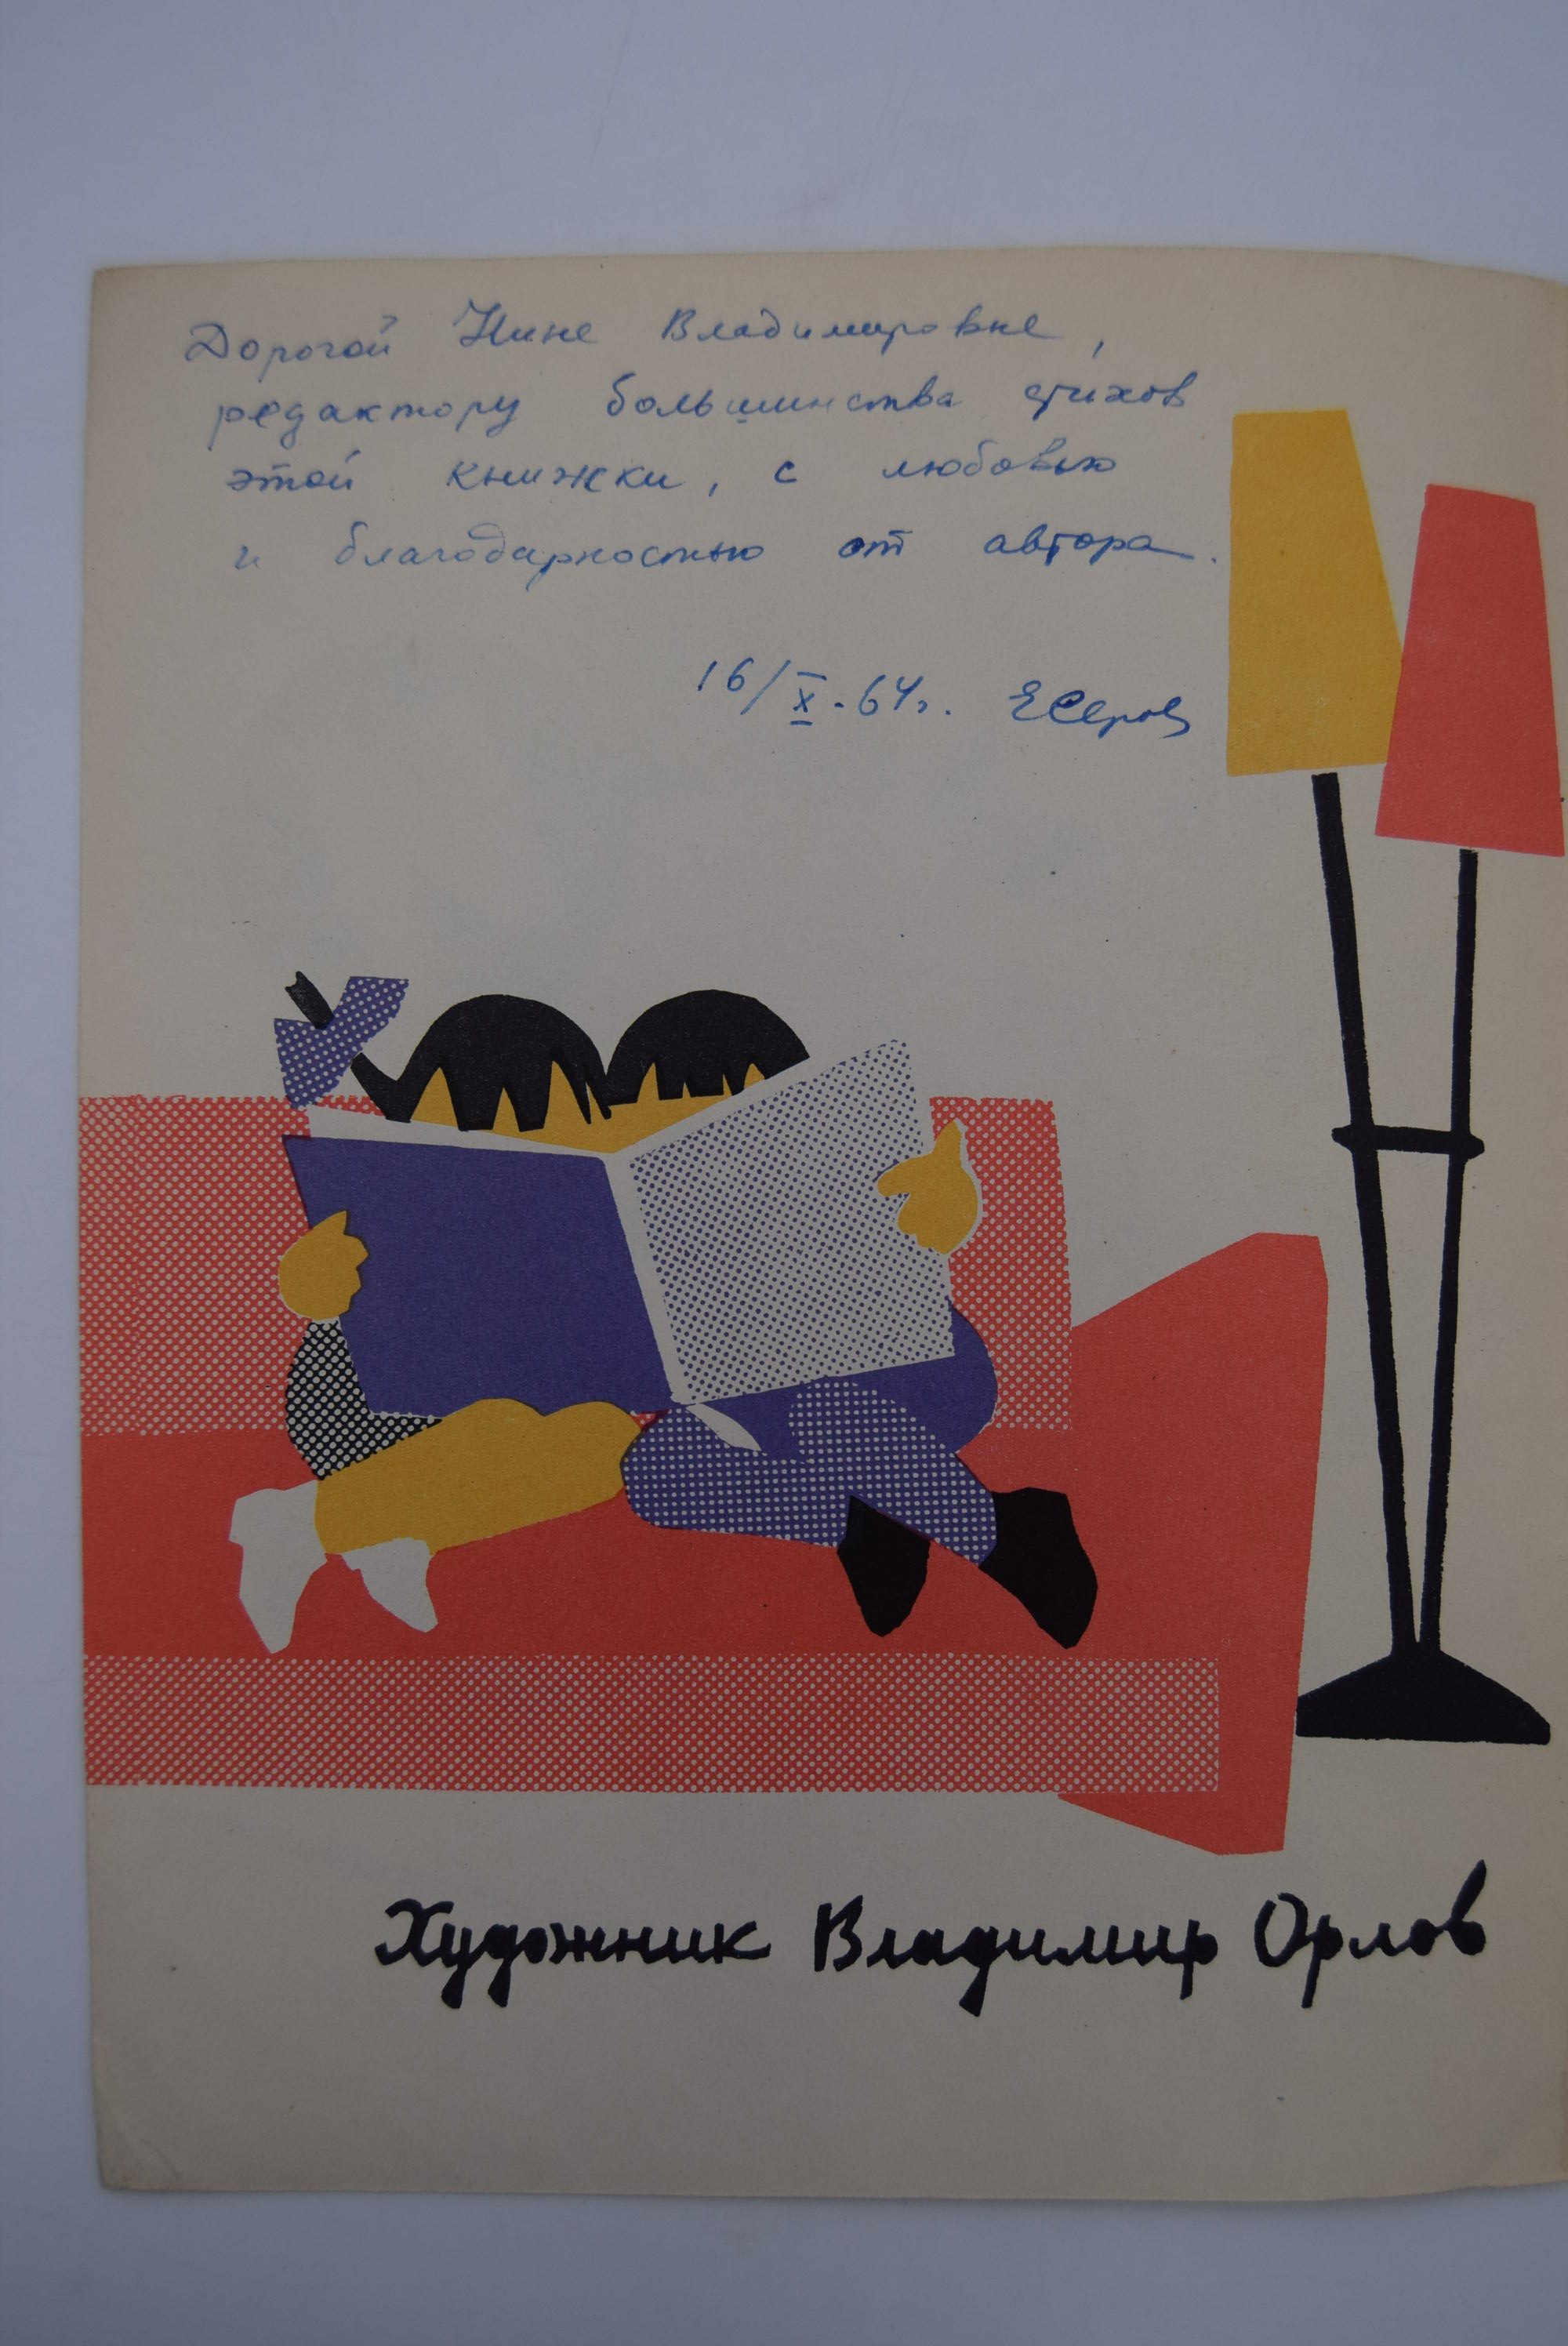 Дорогой Нине Владимировне,
редактору большинства стихов
этой книжки, с любовью
и благодарностью от автора.
16/X-64г. ЕСеров
Художник Владимир Орлов